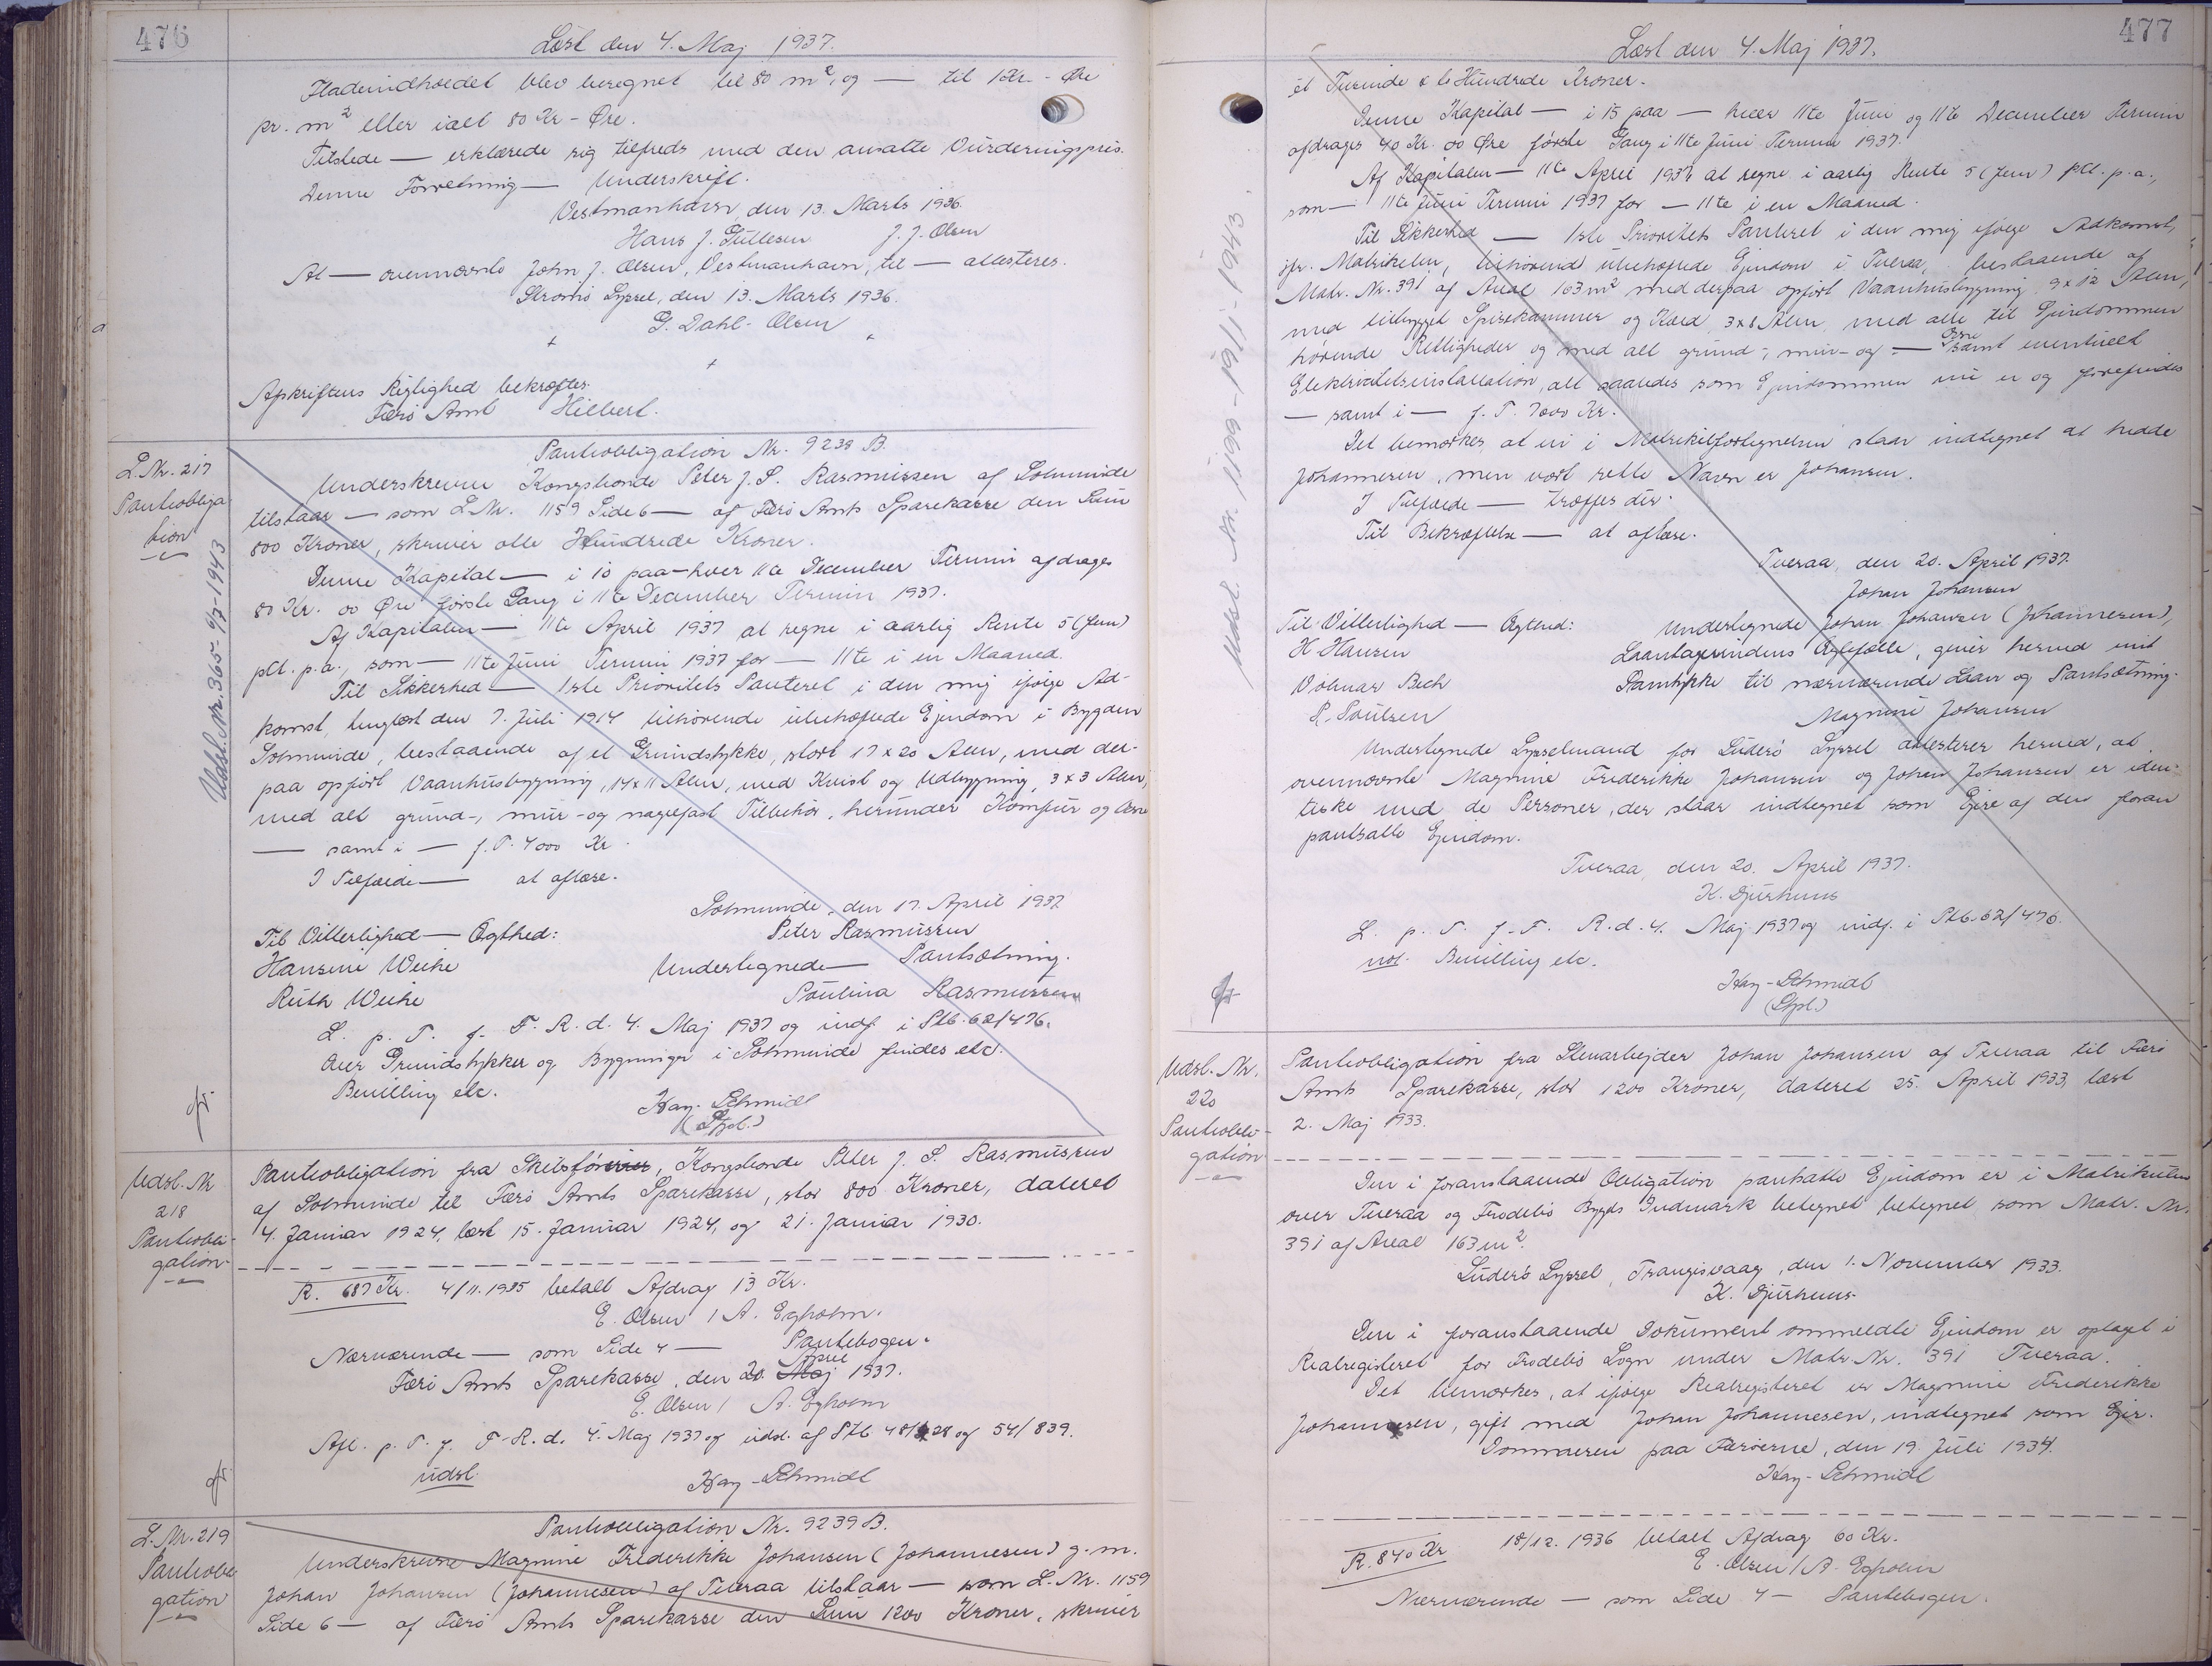 476
Læst den 4. Maj 1937.
Fladeindholdet blev beregnet til 80 m², og — til 1 Kr. - Øre
pr. m² eller ialt 80 Kr - Øre.
Tilstede — erklærede sig tilfreds med den ansatte Vurderingspris.
Denne Forretning — Underskrift.
Vestmanhavn, den 13. Marts 1936.
Hans J. Gullesen J. J. Olsen
At — ovennævnte John J. Olsen, Vestmanhavn, til — attesteres.
Strømø Syssel, den 13. Marts 1936.
G. Dahl-Olsen
Afskriftens Rigtighed bekræftes.
Færø Amt Hilbert.
L. Nr. 217
Pantobliga
tion
Udsl. Nr. 365 - 6/7-1943
Pantobligation Nr. 9238 B.
Underskrevne Kongsbonde Peter J. S. Rasmussen af Solmunde
tilstaar — som L. Nr. 1159 Side 6 — af Færø Amts Sparekasse den Sum
800 Kroner, skriver otte Hundrede Kroner.
Denne Kapital — i 10 paa — hver 11te December Termin afdrages
80 Kr. 00 Øre første Gang i 11te December Termin 1937.
Af Kapitalen — 11te April 1937 at regne i aarlig Rente 5 (fem)
pCt. p.a., som — 11te Juni Termin 1937 for — 11te i en Maaned.
Til Sikkerhed — 1ste Prioritets Panteret i den mig ifølge Ad-
komst, tinglæst den 7. Juli 1914 tilhørende ubehæftede Ejendom i Bygden
Solmunde, bestaaende af et Grundstykke, stort 17 x 20 Alen, med der-
paa opført Vaanhusbygning, 14 x 11 Alen, med Kvist og Udbygning 3 x 3 Alen,
med alt grund-, mur- og nagelfast Tilbehør, herunder Komfur og Ovne
— samt i — f. T. 4000 Kr.
I Tilfælde — at aflæse.
Solmunde, den 17. April 1937.
Til Vitterlighed — Ægthed: Peter Rasmussen
Hansine Weihe Undertegnede — Pantsætning.
Ruth Weihe Poulina Rasmussen
L. p. T. f. F. R. d. 4. Maj 1937 og indf. i Ptb. 62/476.
Over Grundstykker og Bygninger i Solmunde findes etc.
Bevilling etc.
Kay-Schmidt
Udsl. Nr
218
Pantobli-
gation
Pantobligation fra Skibsfører, Kongsbonde Peter J. S. Rasmussen
af Solmunde til Færø Amts Sparekasse, stor 800 Kroner, dateret
4. Januar 1924, læst 15. Januar 1924, og 21. Januar 1930.
R. 687 Kr. 4/11. 1935 betalt Afdrag 13 Kr.
E. Olsen / A. Egholm.
Nærværende — som Side 4 — Pantebogen.
Færø Amts Sparekasse, den 20. Maj April 1937.
E. Olsen / A. Egholm
Afl. p. T. f. F. R. d. 4. Maj 1937 og udsl. af Ptb 48/828 og 54/839.
udsl. Kay-Schmidt
L. Nr. 219
Pantobli
gation
Pantobligation Nr. 9239 B.
Underskrevne Magnine Frederikke Johansen (Johannesen) g. m.
Johan Johansen (Johannesen) af Tveraa tilstaar — som L. Nr. 1159
Side 6 — af Færø Amts Sparekasse den Sum 1200 Kroner, skriver
477
Læst den 4. Maj 1937.
et Tusinde & to Hundrede Kroner.
Udsl. Nr. 1169-19/11-1943.
Denne Kapital — i 15 paa — hver 11te Juni og 11te December Termin
afdrages 40 Kr. 00 Øre første Gang i 11te Juni Termin 1937.
Af Kapitalen — 11te April 1937 at regne i aarlig Rente 5 (fem) pCt. p. a.,
som — 11te Juni Termin 1937 for — 11te i en Maaned.
Til Sikkerhed — 1ste Prioritets Panteret i den mig ifølge Adkomst,
jfr. Matrikelen, tilhørende ubehæftede Ejendom i Tveraa, bestaaende af
Matr. Nr. 391 af Areal 163 m² med derpaa opført Vaanhusbygning 9 x 12 Alen,
med tilbygget Spisekammer og Kæld 3 x 8 Alen, med alle til Ejendommen
hørende Rettigheder og med alt grund-, mur- og — Ovne samt eventuelt
Elektricitetsinstallation, alt saaledes som Ejendommen nu er og forefindes
— samt i — f. T. 7000 Kr.
Det bemærkes, at vi i Matrikelfortegnelsen staar indtegnet at hedde
Johannesen, men vort rette Navn er Johansen.
I Tilfælde — træffes dér.
Til Bekræftelse — at aflæse.
Tveraa, den 20. April 1937.
Johan Johansen
Til Vitterlighed — Ægthed: Undertegnede Johan Johansen (Johannesen),
H Hansen Laantagerindens Ægtefælle, giver herved mit
Volmar Bech Samtykke til nærværende Laan og Pantsætning.
P. Poulsen Magnine Johansen
Undertegnede Sysselmand for Suderø Syssel attesterer herved, at
ovennævnte Magnine Frederikke Johansen og Johan Johansen er iden-
tiske med de Personer, der staar indtegnet som Ejere af den foran
pantsatte Ejendom.
Tveraa, den 20. April 1937.
K. Djurhuus
L. p. T. f. F. R. d. 4. Maj 1937 og indf. i Ptb. 62/476.
Bevilling etc.
Kay-Schmidt
Udsl. Nr.
220
Pantobli-
gation
Pantobligation fra Stenarbejder Johan Johansen af Tveraa til Færø
Amts Sparekasse, stor 1200 Kroner, dateret 25. April 1933, læst
2. Maj 1933.
Den i foranstaaende Obligation pantsatte Ejendom er i Matrikulen
over Tveraa og Frodebø Bygds Indmark betegnet betegnet som Matr. Nr.
391 af Areal 163 m².
Suderø Syssel, Trangisvaag, den 1. November 1933.
K. Djurhuus
Den i foranstaaende Dokument ommeldte Ejendom er optaget i
Realregisteret for Frodebø Sogn under Matr. Nr. 391 Tveraa.
Det bemærkes, at ifølge Realregisteret er Magnine Frederikke
Johannesen, gift med Johan Johannesen, indtegnet som Ejer.
Dommeren paa Færøerne, den 19. Juli 1934.
Kay-Schmidt
R. 840 Kr 18/12. 1936 betalt Afdrag 60 Kr.
E. Olsen / A. Egholm
Nærværende — som Side 4 — Pantebogen.